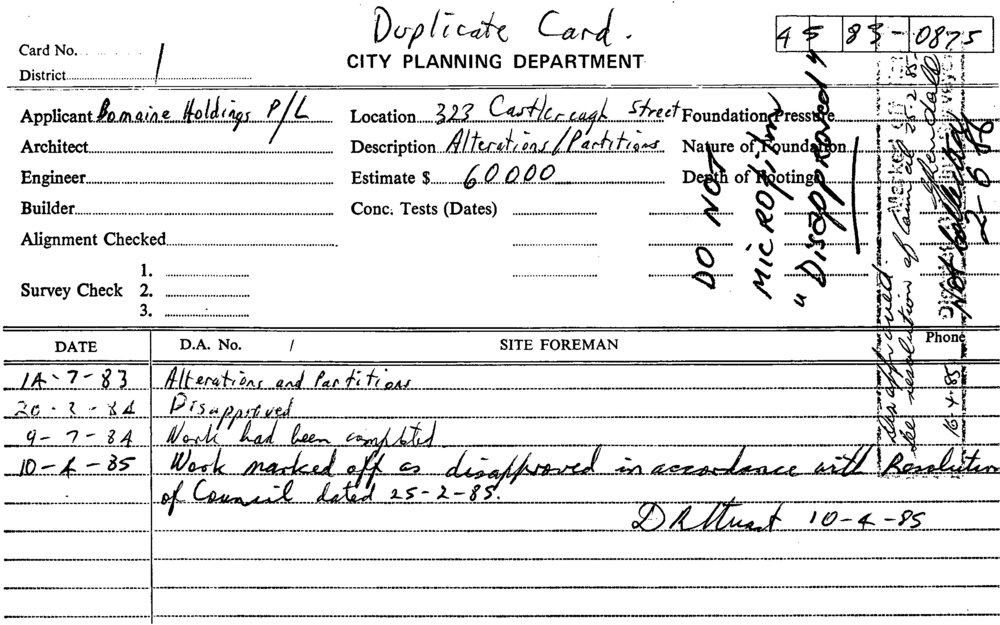 Duplicate Card.
45 83-0875
Card No. 1
CITY PLANNING DEPARTMENT
District
Applicant Bomaine Holdings P/L Location 323 Castlereagh Street Foundation Pressure
Architect Description Alterations/Partitions Nature of Foundation
Engineer Estimate $ 60000 Depth of Footings
Builder Conc. Tests (Dates)
Alignment Checked
1.
Survey Check 2.
3.
DO NOT
MICROFILM
"Disapproved"
Disapproved.
See resolution of Council 25-2-85
Not
2-6-86
16-4-85
DATE D.A. No. / SITE FOREMAN Phone
14-7-83 Alterations and Partitions
20-2-84 Disapproved
9-7-84 Work had been completed
10-4-85 Work marked off as disapproved in accordance with Resolution
of Council dated 25-2-85.
10-4-85